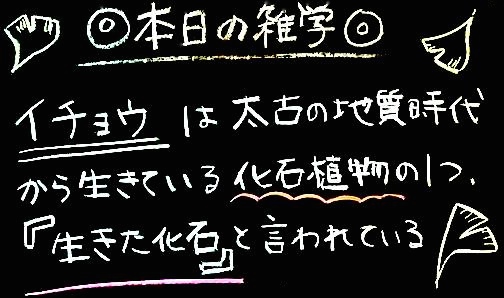 ◎本日の雑学◎
イチョウは太古の地質時代
から生きている化石植物の1つ、
『生きた化石』と言われている